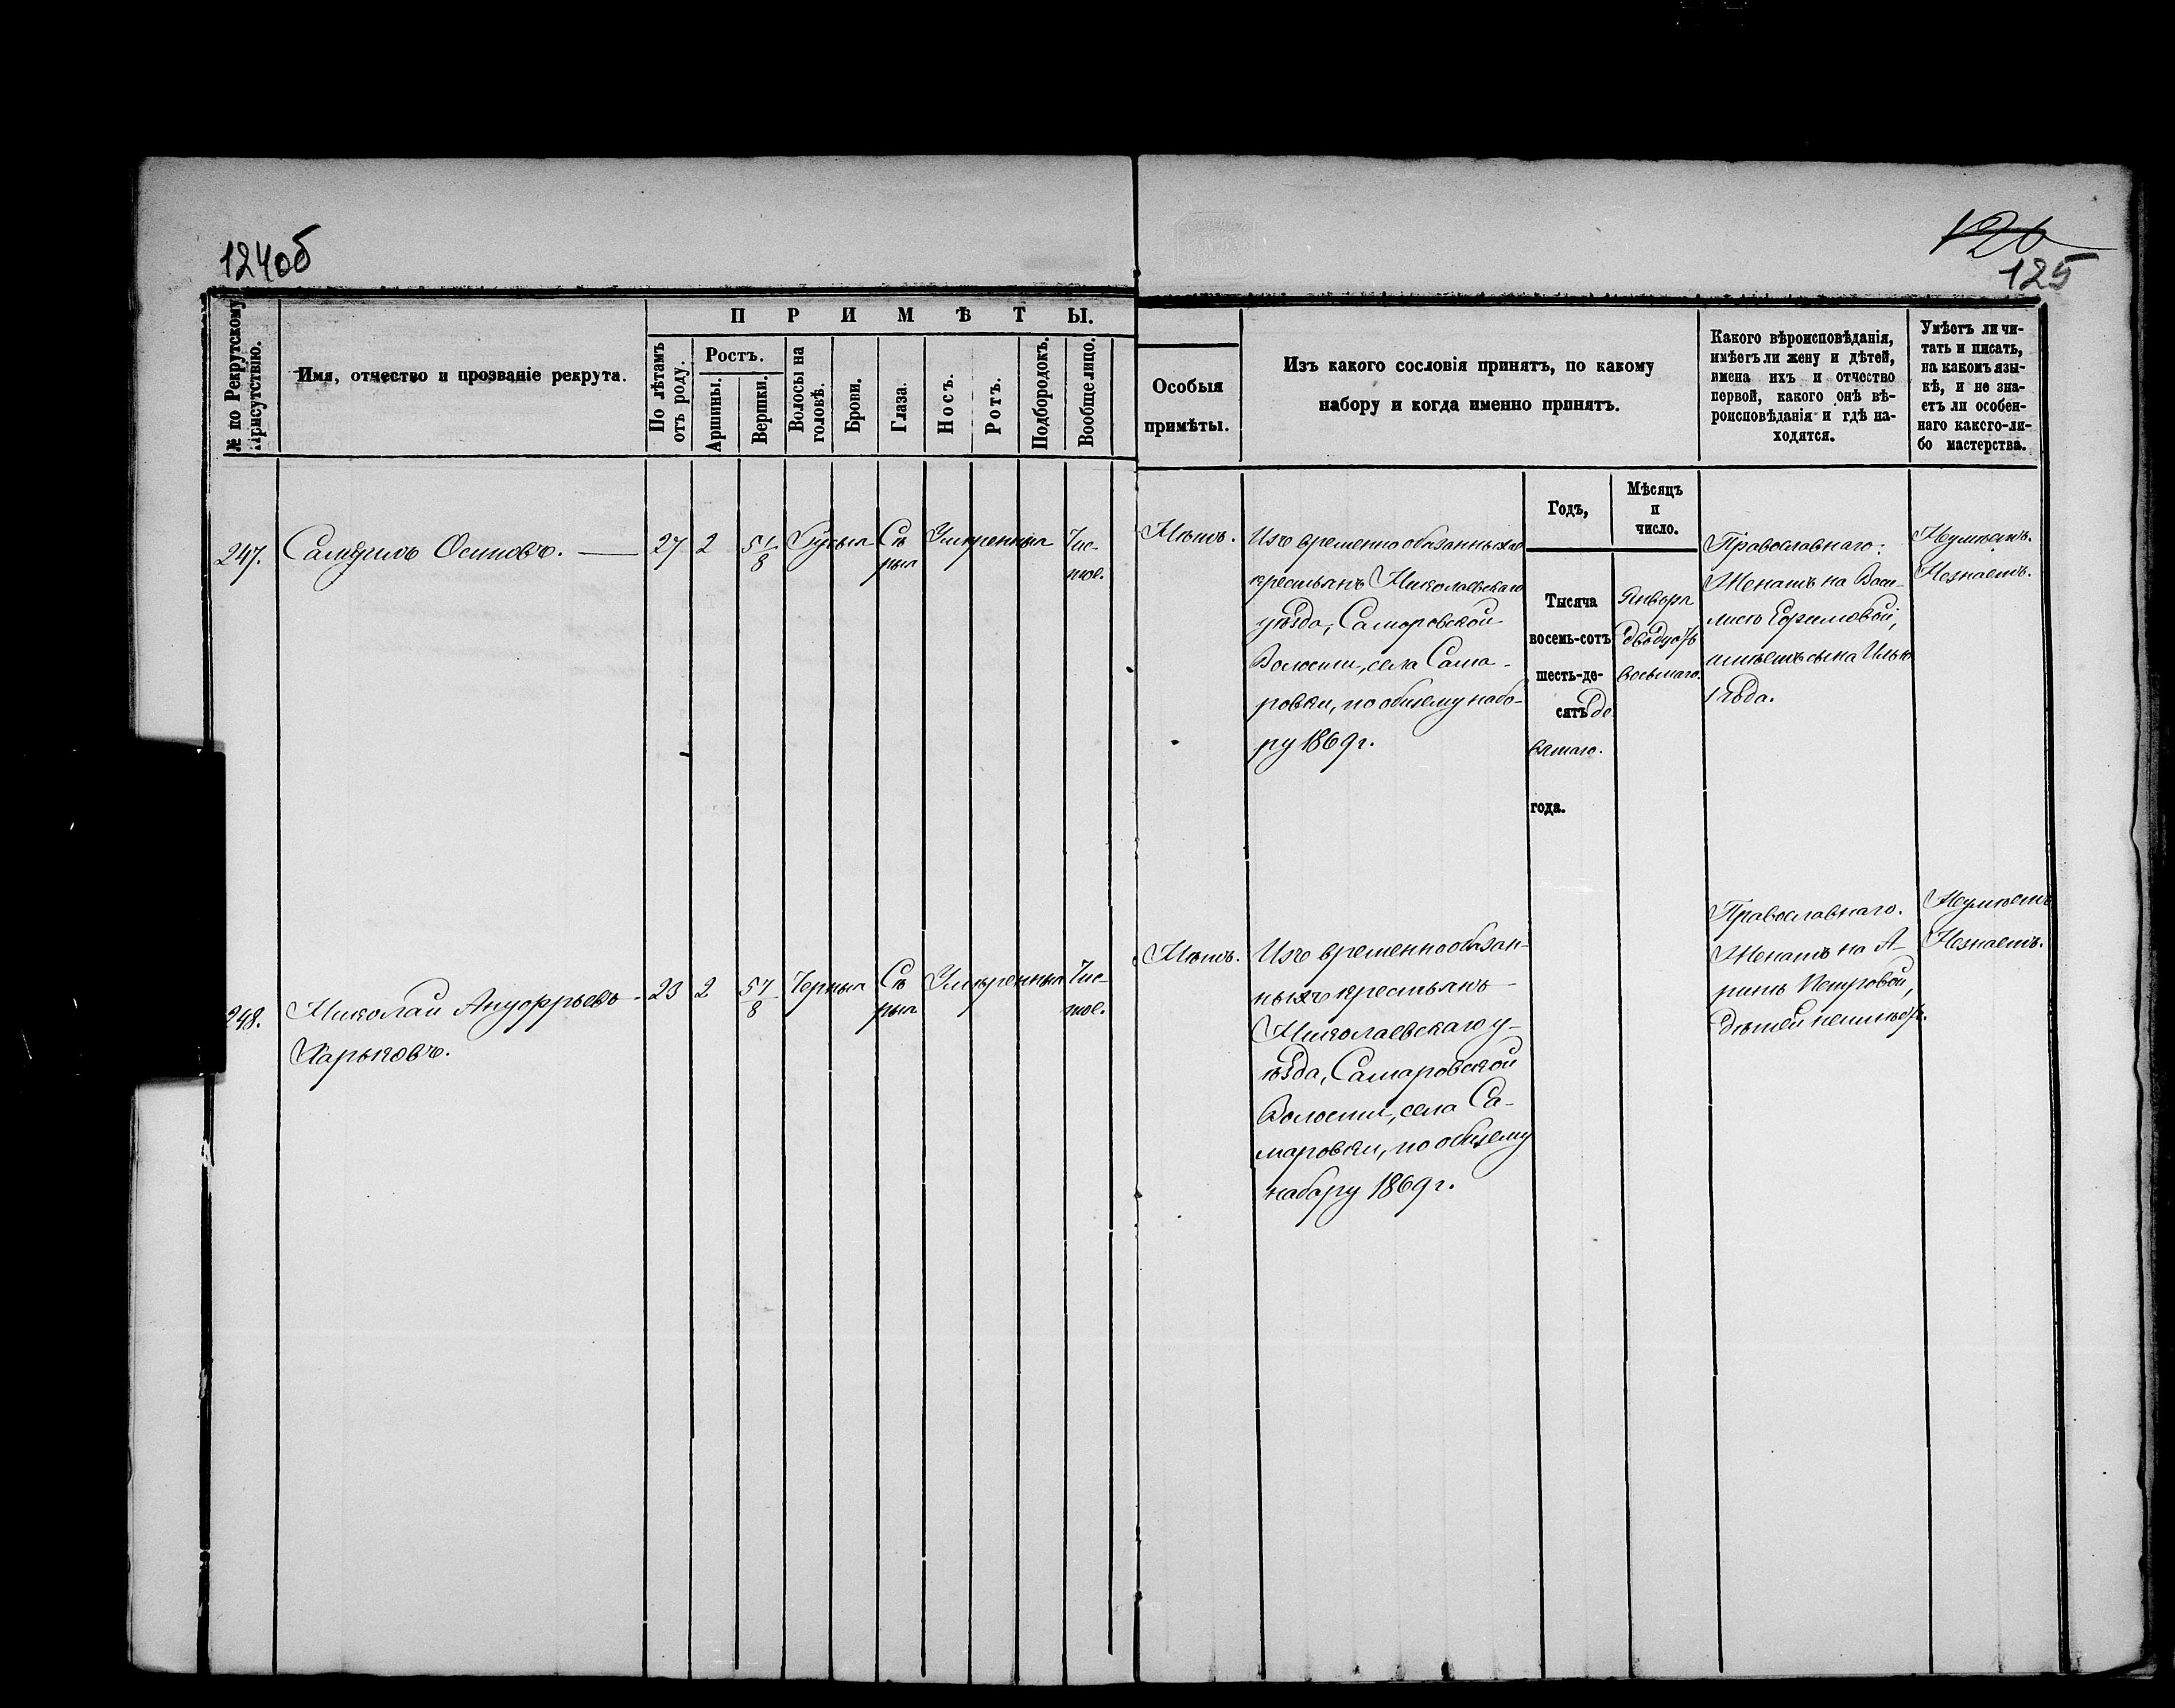 124об
126
125
№ по Рекрутскому Присутствію.
Имя, отчество и прозваніе рекрута.
ПРИМѢТЫ.
По лѣтамъ отъ роду.
Ростъ.
Аршины.
Вершки.
Волосы на головѣ.
Брови.
Глаза.
Носъ.
Ротъ.
Подбородокъ.
Вообще лицо.
Особыя
примѣты.
Изъ какого сословія принятъ, по какому
набору и когда именно принятъ.
Какого вѣроисповѣданія,
имѣетъ ли жену и дѣтей,
имена ихъ и отчество
первой, какого онѣ вѣ-
роисповѣданія и гдѣ на-
ходятся.
Умѣетъ ли чи-
тать и писать,
на какомъ язы-
кѣ, и не зна-
етъ ли особен-
наго какого-ли-
бо мастерства.
Годъ,
Мѣсяцъ
и
число.
247.
Осиповъ.
27
2
5 1/8
Русыя
Сѣ
рыя
Умѣренныя
Чис-
тое.
Нѣтъ.
Изъ временно обязанныхъ
крестьянъ Николаевскаго
уѣзда, Самаровской
Волости, села Сама-
ровки, по общему набо-
ру 1869 г.
Тысяча
восемь-сотъ
шесть-де-
сятъ де
вятаго.
года.
Января
двадцать
восьмаго.
Православнаго.
Женатъ на Васи-
лисѣ Ефимовой,
имѣетъ сына Илью
1 года.
Неумѣетъ.
Незнаетъ.
248.
Николай Ануфріевъ
Харьковъ.
23
2
5 7/8
Черныя
Сѣ
рыя
Умѣренныя
Чис-
тое.
Нѣтъ.
Изъ временно обязан-
ныхъ крестьянъ
Николаевскаго у-
ѣзда, Самаровской
Волости, села Са-
маровки, по общему
набору 1869 г.
Православнаго.
Женатъ на А-
ринѣ Петровой,
дѣтей неимѣетъ.
Неумѣетъ
Незнаетъ.